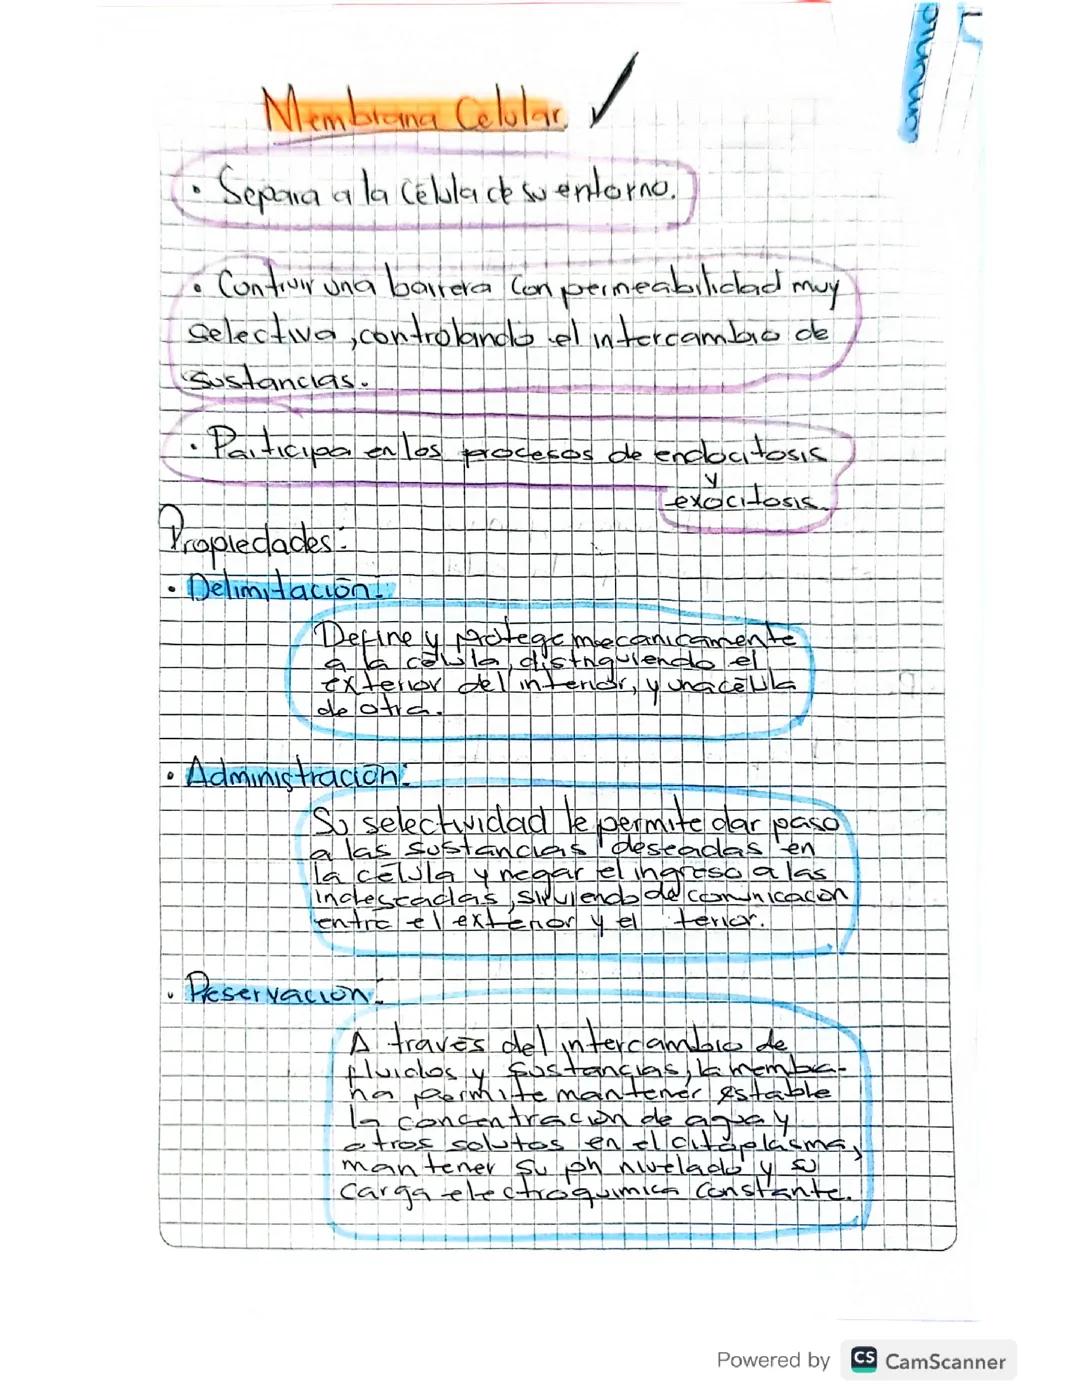 Membrana Celular
• Separa a la célula de su entorno.
• Contruir una barrera con permeabilidad muy
selectiva, controlando el intercambio de
sustancias.
• Participa en los procesos de endocitosis
y
exocitosis.
Propiedades:
• Delimitación:
Define y protege mecanicamente
a la célula, distinguiendo el
exterior del interior, y una célula
de otra.
• Administración:
Su selectividad le permite dar paso
a las sustancias deseadas en
la célula y negar el ingreso a las
indeseadas, sirviendo de comunicacon
entre el exterior y el terior.
• Preservación:
A través del intercambio de
fluidos y sustancias, la membra-
na permite mantener estable
la concentración de agua y
otros solutos en el citoplasma,
mantener su ph nivelado y su
carga electroquimica constante.
Powered by CS CamScanner